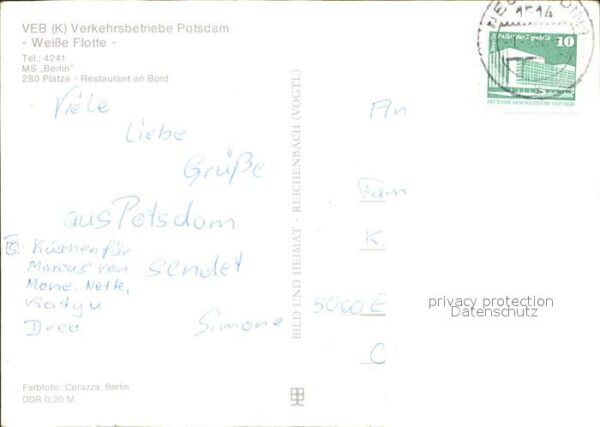 VEB (K) Verkehrsbetriebe Potsdam
- Weiße Flotte -
Tel.: 4241
MS „Berlin"
280 Plätze - Restaurant an Bord
Viele
liebe
Grüße
aus Potsdam
sendet
Simone
Küsschen für
Marcus von
Mone, Nette,
Katyu
Drea
Farbfoto: Corazza, Berlin
DDR 0,20 M
BILD UND HEIMAT - REICHENBACH (VOGTL)
1514
Berlin, Palast der Republik
10
DEUTSCHE DEMOKRATISCHE REPUBLIK
An
Fam
K.
5060 E
C
privacy protection
Datenschutz